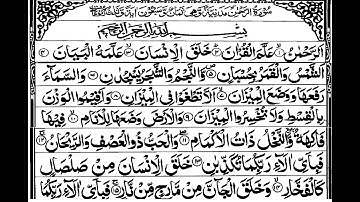 سُوْرَةُ الرَّحْمٰنِ مَدَنِيَّةٌ وَّهِيَ ثَمَانٌ وَّسَبْعُوْنَ اٰيَةً وَّثَلٰثُ رُكُوْعَاتٍ
بِسْمِ اللّٰهِ الرَّحْمٰنِ الرَّحِيْمِ
اَلرَّحْمٰنُ ۙ۱ عَلَّمَ الْقُرْاٰنَ ؕ۲ خَلَقَ الْاِنْسَانَ ۙ۳ عَلَّمَهُ الْبَيَانَ ۴
اَلشَّمْسُ وَالْقَمَرُ بِحُسْبَانٍ ۪۵ وَّالنَّجْمُ وَالشَّجَرُ يَسْجُدٰنِ ۶ وَالسَّمَآءَ
رَفَعَهَا وَوَضَعَ الْمِيْزَانَ ۙ۷ اَلَّا تَطْغَوْا فِي الْمِيْزَانِ ۸ وَاَقِيْمُوا الْوَزْنَ
بِالْقِسْطِ وَلَا تُخْسِرُوا الْمِيْزَانَ ۹ وَالْاَرْضَ وَضَعَهَا لِلْاَنَامِ ۙ۱۰ فِيْهَا
فَاكِهَةٌ ۪ۙ وَّالنَّخْلُ ذَاتُ الْاَكْمَامِ ۖ۱۱ وَالْحَبُّ ذُو الْعَصْفِ وَالرَّيْحَانُ ۚ۱۲
فَبِاَيِّ اٰلَآءِ رَبِّكُمَا تُكَذِّبٰنِ ۱۳ خَلَقَ الْاِنْسَانَ مِنْ صَلْصَالٍ
كَالْفَخَّارِ ۙ۱۴ وَخَلَقَ الْجَآنَّ مِنْ مَّارِجٍ مِّنْ نَّارٍ ۚ۱۵ فَبِاَيِّ اٰلَآءِ رَبِّكُمَا